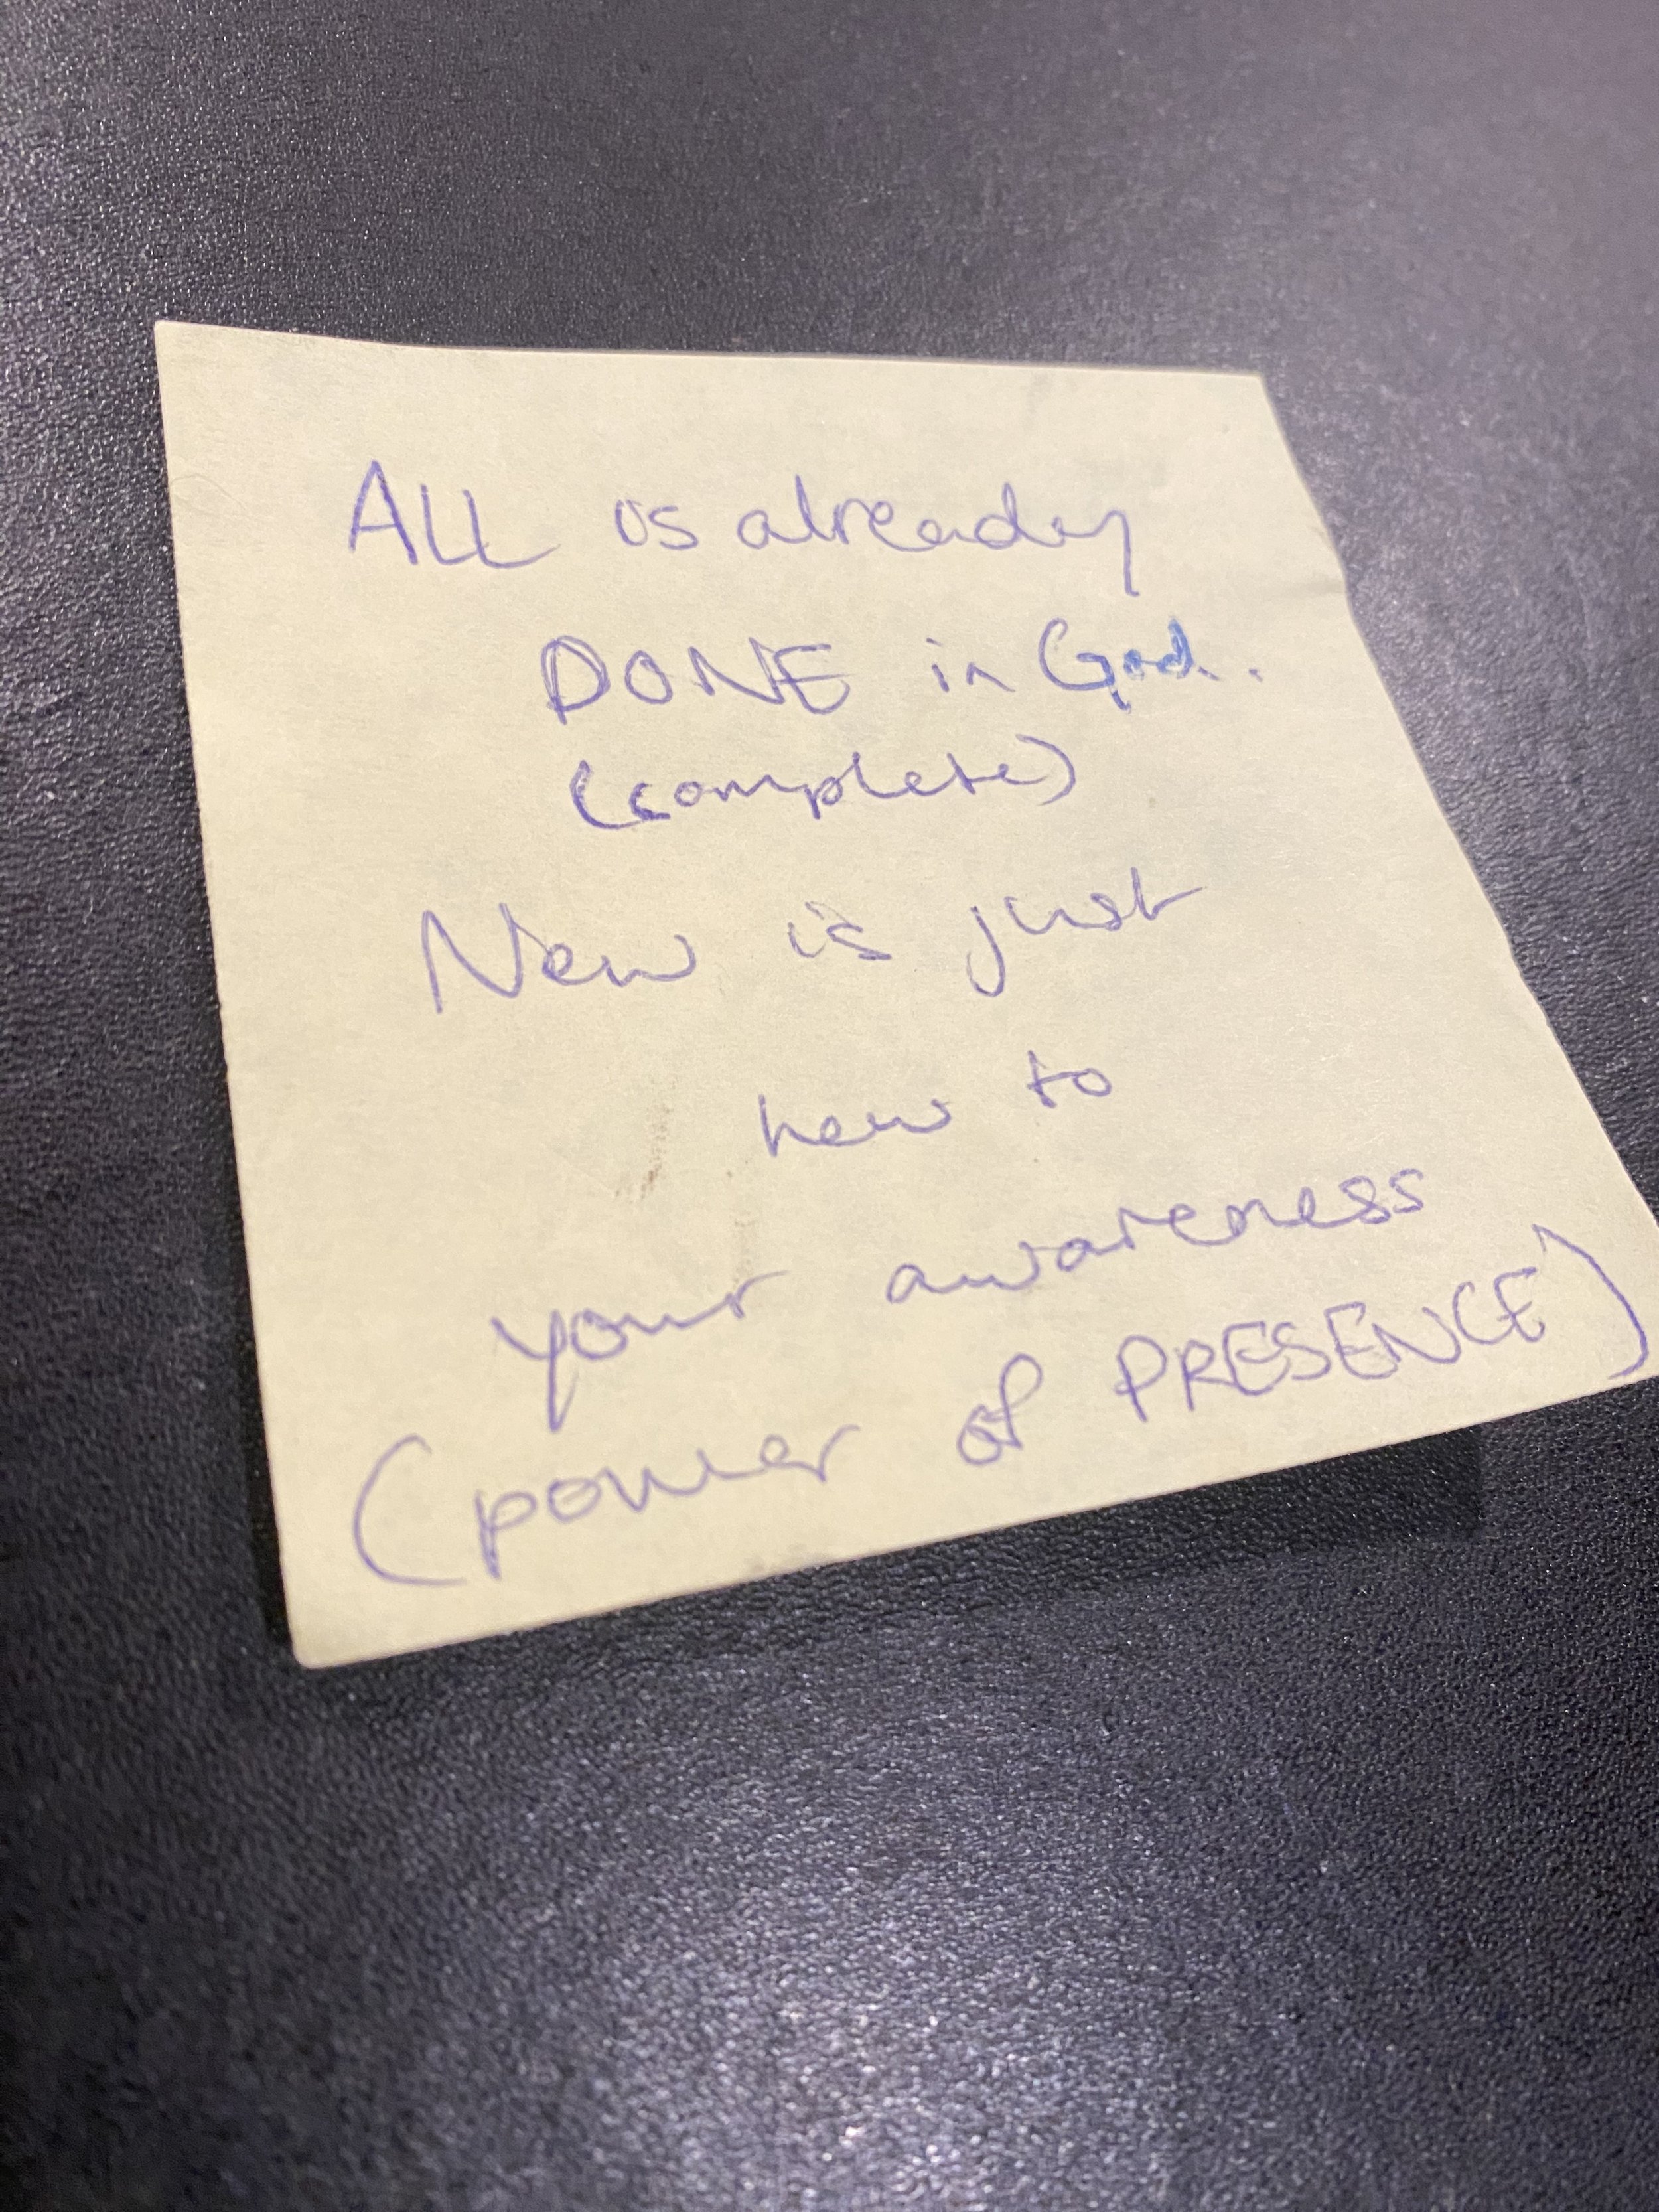 ALL is already
DONE in God.
(complete)
New is just
new to
your awareness
(power of PRESENCE)